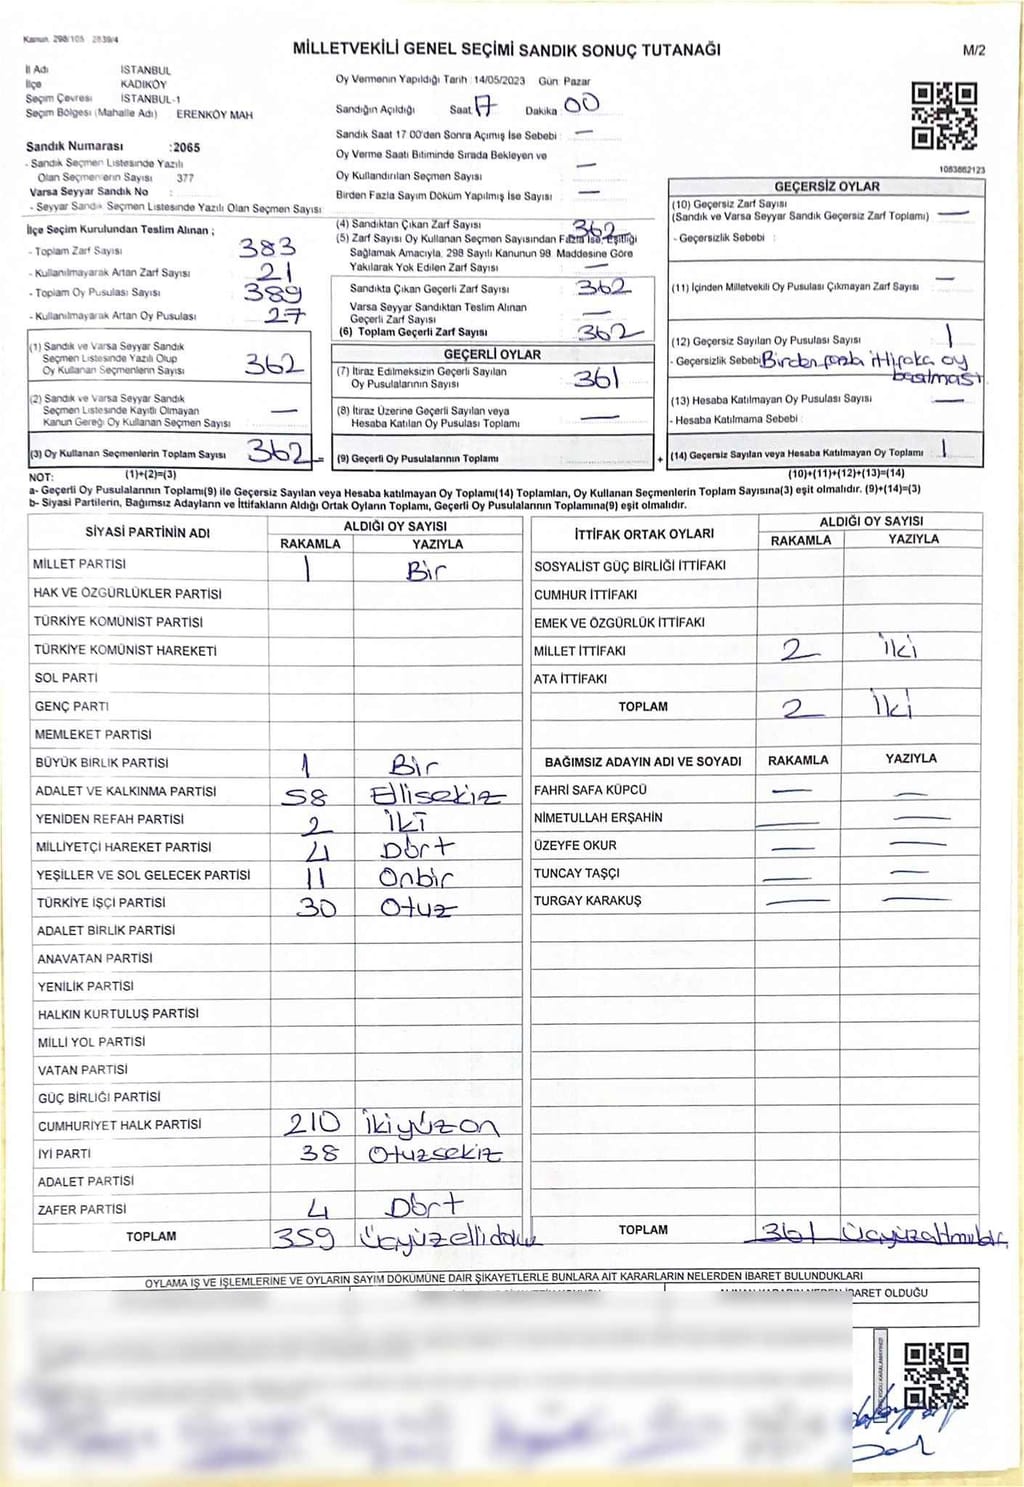 Kanun 298/105 2839/4
MİLLETVEKİLİ GENEL SEÇİMİ SANDIK SONUÇ TUTANAĞI
M/2
İl Adı İSTANBUL
İlçe KADIKÖY
Seçim Çevresi İSTANBUL-1
Seçim Bölgesi (Mahalle Adı) ERENKÖY MAH
Sandık Numarası :2065
- Sandık Seçmen Listesinde Yazılı
Olan Seçmenlerin Sayısı 377
Varsa Seyyar Sandık No :
- Seyyar Sandık Seçmen Listesinde Yazılı Olan Seçmen Sayısı
İlçe Seçim Kurulundan Teslim Alınan ;
- Toplam Zarf Sayısı 383
- Kullanılmayarak Artan Zarf Sayısı 21
- Toplam Oy Pusulası Sayısı 389
- Kullanılmayarak Artan Oy Pusulası 27
(1) Sandık ve Varsa Seyyar Sandık
Seçmen Listesinde Yazılı Olup
Oy Kullanan Seçmenlerin Sayısı 362
(2) Sandık ve Varsa Seyyar Sandık
Seçmen Listesinde Kayıtlı Olmayan
Kanun Gereği Oy Kullanan Seçmen Sayısı —
(3) Oy Kullanan Seçmenlerin Toplam Sayısı 362 =
(1)+(2)=(3)
Oy Vermenin Yapıldığı Tarih :14/05/2023 Gün: Pazar
Sandığın Açıldığı Saat 17 Dakika 00
Sandık Saat 17 00'den Sonra Açılmış İse Sebebi : —
Oy Verme Saati Bitiminde Sırada Bekleyen ve
Oy Kullandırılan Seçmen Sayısı —
Birden Fazla Sayım Döküm Yapılmış İse Sayısı —
(4) Sandıktan Çıkan Zarf Sayısı 362
(5) Zarf Sayısı Oy Kullanan Seçmen Sayısından Fazla İse, Eşitliği
Sağlamak Amacıyla, 298 Sayılı Kanunun 98. Maddesine Göre
Yakılarak Yok Edilen Zarf Sayısı —
Sandıkta Çıkan Geçerli Zarf Sayısı 362
Varsa Seyyar Sandıktan Teslim Alınan
Geçerli Zarf Sayısı —
(6) Toplam Geçerli Zarf Sayısı 362
GEÇERLİ OYLAR
(7) İtiraz Edilmeksizin Geçerli Sayılan
Oy Pusulalarının Sayısı 361
(8) İtiraz Üzerine Geçerli Sayılan veya
Hesaba Katılan Oy Pusulası Toplamı —
(9) Geçerli Oy Pusulalarının Toplamı +
1083662123
GEÇERSİZ OYLAR
(10) Geçersiz Zarf Sayısı
(Sandık ve Varsa Seyyar Sandık Geçersiz Zarf Toplamı) —
- Geçersizlik Sebebi :
(11) İçinden Milletvekili Oy Pusulası Çıkmayan Zarf Sayısı —
(12) Geçersiz Sayılan Oy Pusulası Sayısı 1
- Geçersizlik Sebebi Birden fazla ittifaka oy
basılması
(13) Hesaba Katılmayan Oy Pusulası Sayısı —
- Hesaba Katılmama Sebebi :
(14) Geçersiz Sayılan veya Hesaba Katılmayan Oy Toplamı 1
(10)+(11)+(12)+(13)=(14)
NOT:
a- Geçerli Oy Pusulalarının Toplamı(9) ile Geçersiz Sayılan veya Hesaba katılmayan Oy Toplamı(14) Toplamları, Oy Kullanan Seçmenlerin Toplam Sayısına(3) eşit olmalıdır. (9)+(14)=(3)
b- Siyasi Partilerin, Bağımsız Adayların ve İttifakların Aldığı Ortak Oyların Toplamı, Geçerli Oy Pusulalarının Toplamına(9) eşit olmalıdır.
SİYASİ PARTİNİN ADI ALDIĞI OY SAYISI
RAKAMLA YAZIYLA
MİLLET PARTİSİ 1 Bir
HAK VE ÖZGÜRLÜKLER PARTİSİ
TÜRKİYE KOMÜNİST PARTİSİ
TÜRKİYE KOMÜNİST HAREKETİ
SOL PARTİ
GENÇ PARTİ
MEMLEKET PARTİSİ
BÜYÜK BİRLİK PARTİSİ 1 Bir
ADALET VE KALKINMA PARTİSİ 58 Ellisekiz
YENİDEN REFAH PARTİSİ 2 İki
MİLLİYETÇİ HAREKET PARTİSİ 4 Dört
YEŞİLLER VE SOL GELECEK PARTİSİ 11 Onbir
TÜRKİYE İŞÇİ PARTİSİ 30 Otuz
ADALET BİRLİK PARTİSİ
ANAVATAN PARTİSİ
YENİLİK PARTİSİ
HALKIN KURTULUŞ PARTİSİ
MİLLİ YOL PARTİSİ
VATAN PARTİSİ
GÜÇ BİRLİĞİ PARTİSİ
CUMHURİYET HALK PARTİSİ 210 İkiyüzon
İYİ PARTİ 38 Otuzsekiz
ADALET PARTİSİ
ZAFER PARTİSİ 4 Dört
TOPLAM 359 Üçyüzellidokuz
İTTİFAK ORTAK OYLARI ALDIĞI OY SAYISI
RAKAMLA YAZIYLA
SOSYALİST GÜÇ BİRLİĞİ İTTİFAKI
CUMHUR İTTİFAKI
EMEK VE ÖZGÜRLÜK İTTİFAKI
MİLLET İTTİFAKI 2 İki
ATA İTTİFAKI
TOPLAM 2 İki
BAĞIMSIZ ADAYIN ADI VE SOYADI RAKAMLA YAZIYLA
FAHRİ SAFA KÜPCÜ — —
NİMETULLAH ERŞAHİN — —
ÜZEYFE OKUR — —
TUNCAY TAŞÇI — —
TURGAY KARAKUŞ — —
TOPLAM 361 Üçyüzaltmışbir
OYLAMA İŞ VE İŞLEMLERİNE VE OYLARIN SAYIM DÖKÜMÜNE DAİR ŞİKAYETLERLE BUNLARA AİT KARARLARIN NELERDEN İBARET BULUNDUKLARI
İBARET OLDUĞU